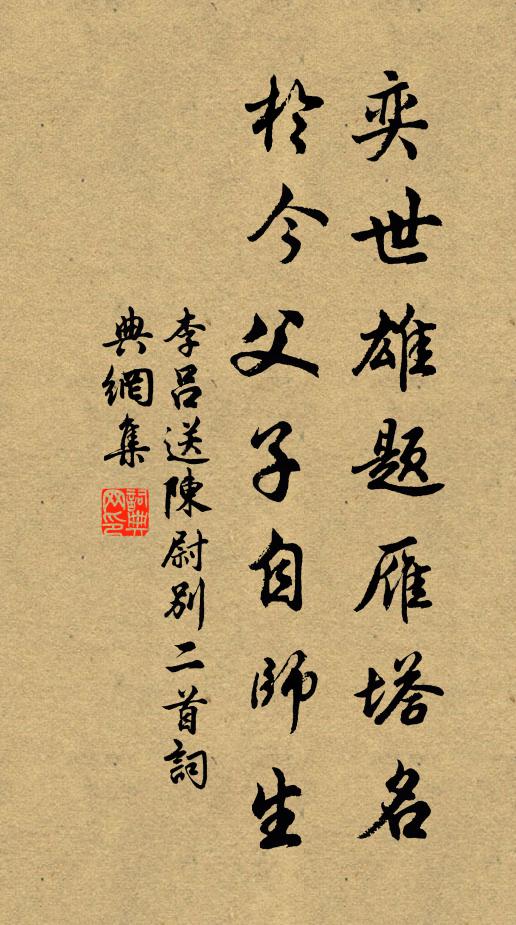 奕世雄題雁塔名
於今父子自師生
李呂送陳尉別二首詞
典網集
詞典網印